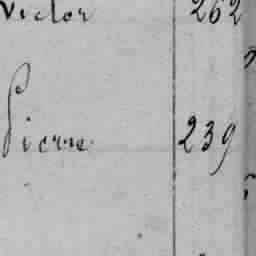 Victor 262
Pierre 239